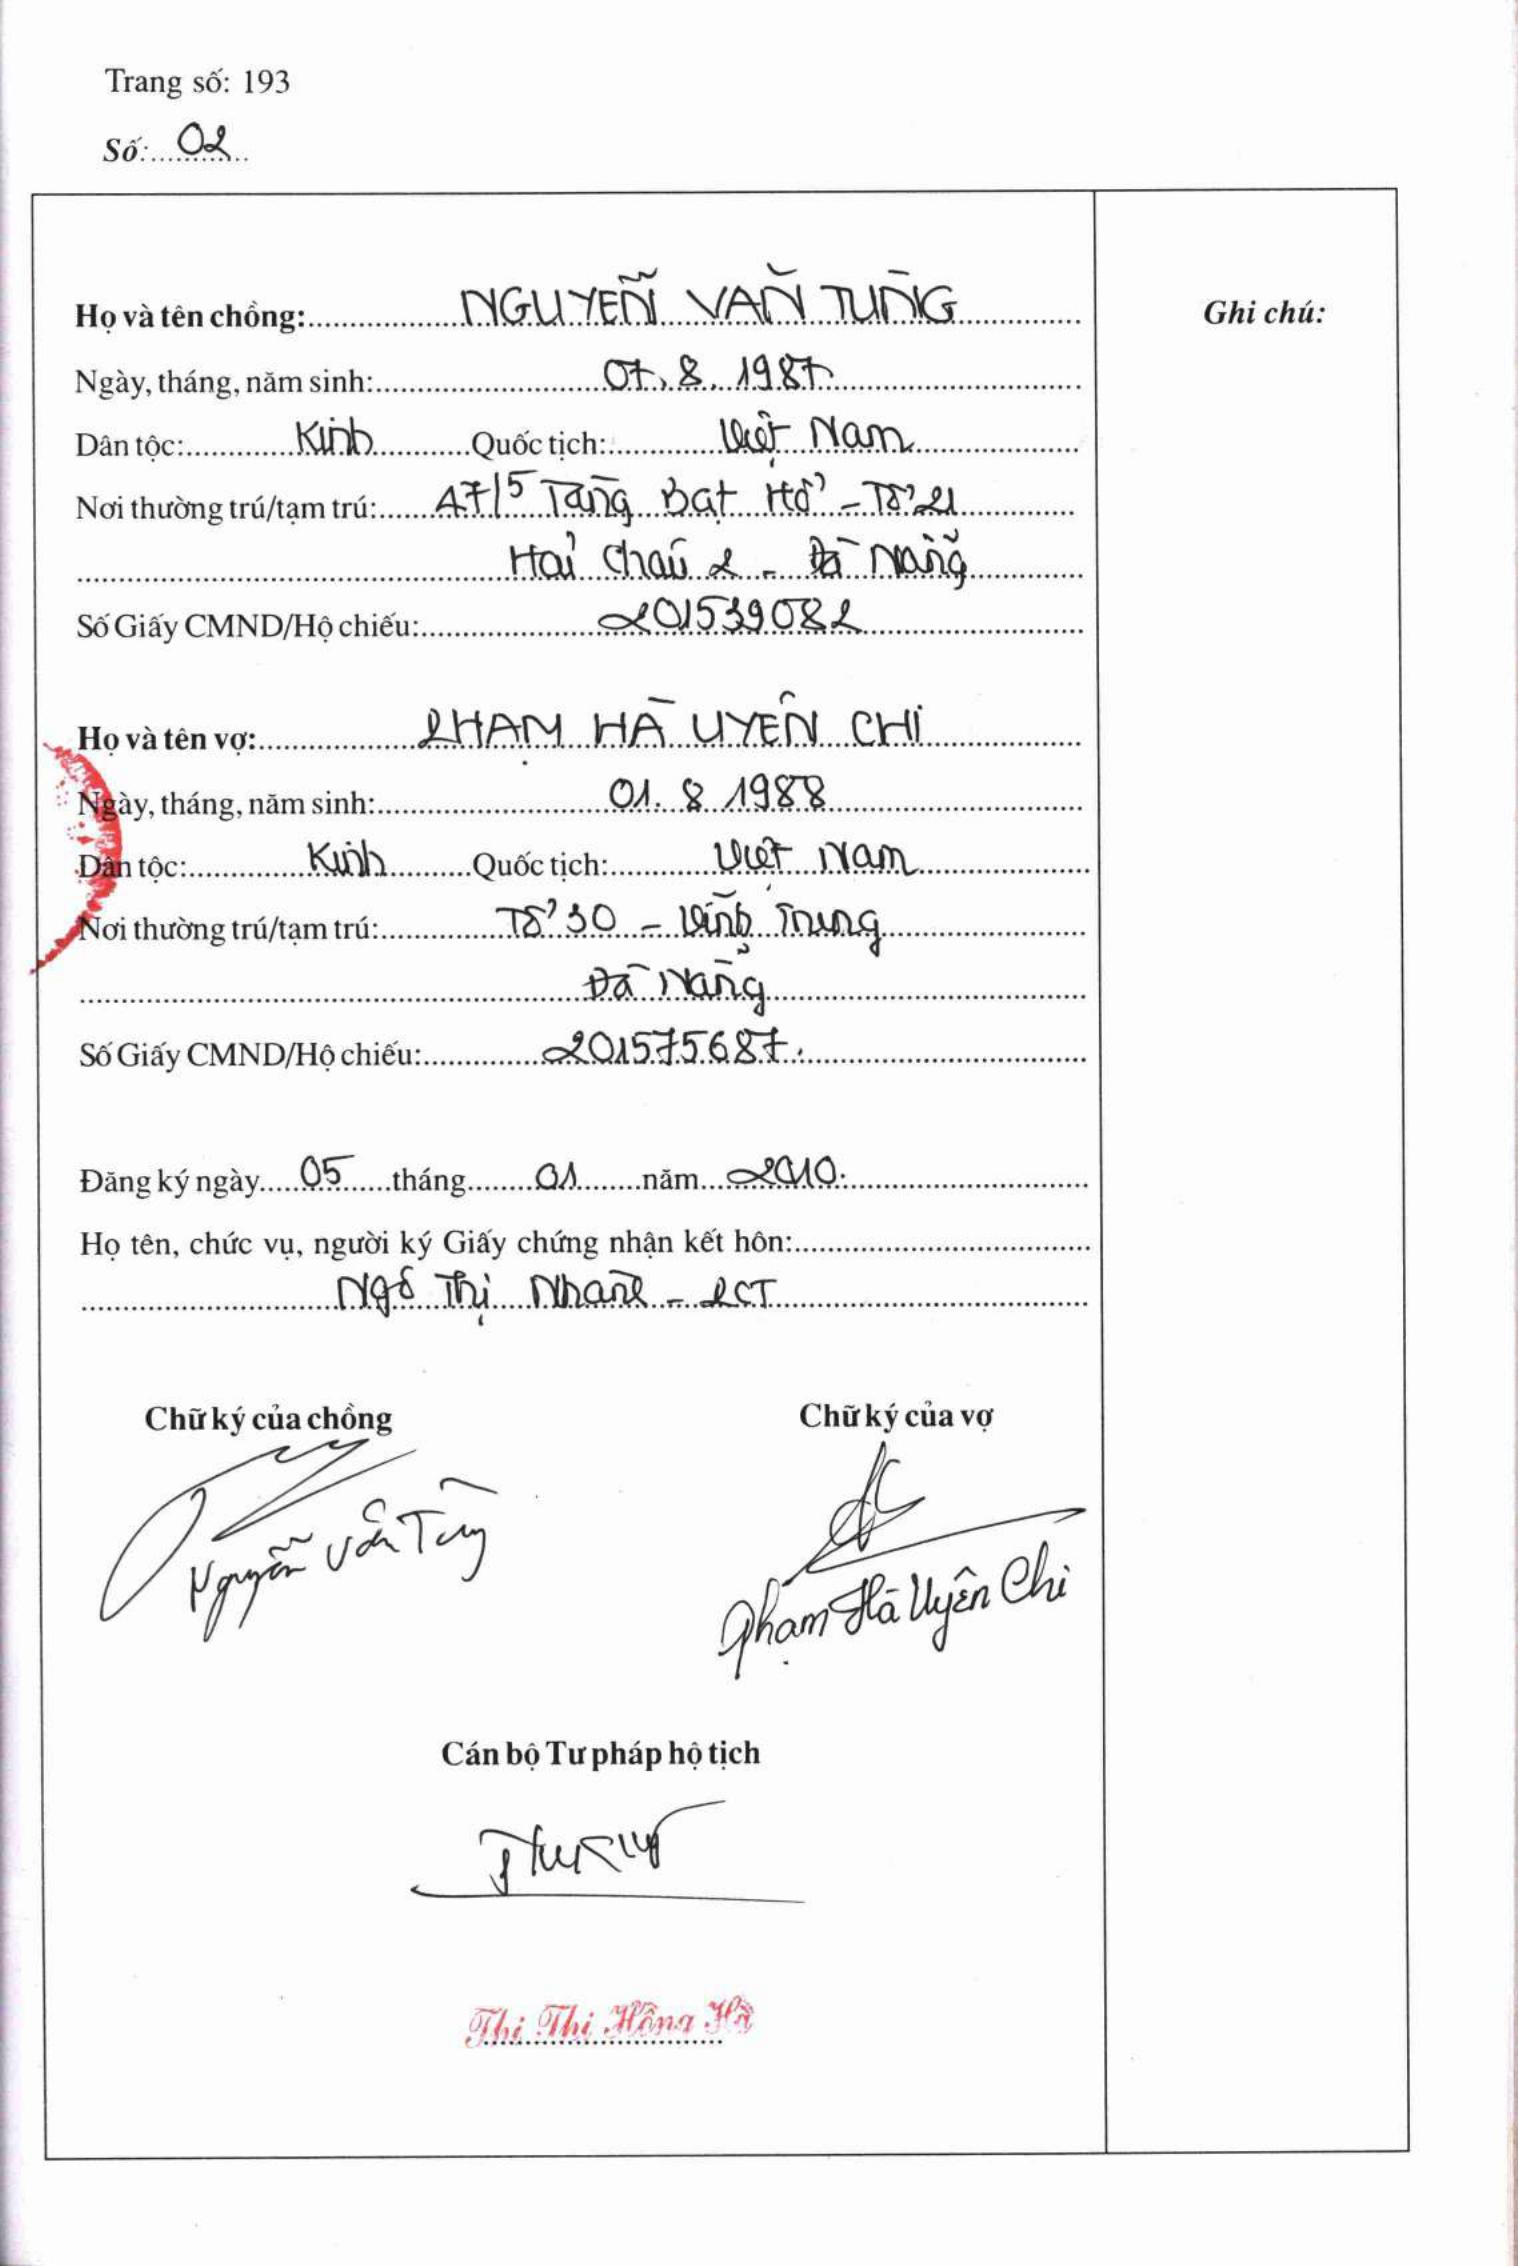 Trang số: 193
Số: 02
Họ và tên chồng: NGUYỄN VĂN TÙNG
Ghi chú:
Ngày, tháng, năm sinh: 07.8.1987
Dân tộc: Kinh Quốc tịch: Việt Nam
Nơi thường trú/tạm trú: A7/5 Tăng Bạt Hổ - Tổ 21
Hải Châu 2 - Đà Nẵng
Số Giấy CMND/Hộ chiếu: 201539082
Họ và tên vợ: PHẠM HÀ UYÊN CHI
Ngày, tháng, năm sinh: 01.8.1988
Dân tộc: Kinh Quốc tịch: Việt Nam
Nơi thường trú/tạm trú: Tổ 30 - Vĩnh Trung
Đà Nẵng
Số Giấy CMND/Hộ chiếu: 201575687.
Đăng ký ngày 05 tháng 01 năm 2010.
Họ tên, chức vụ, người ký Giấy chứng nhận kết hôn:
Ngô Thị Nhanh - PCT
Chữ ký của chồng Chữ ký của vợ
Nguyễn Văn Tùng
Phạm Hà Uyên Chi
Cán bộ Tư pháp hộ tịch
Thi Thị Hồng Hà